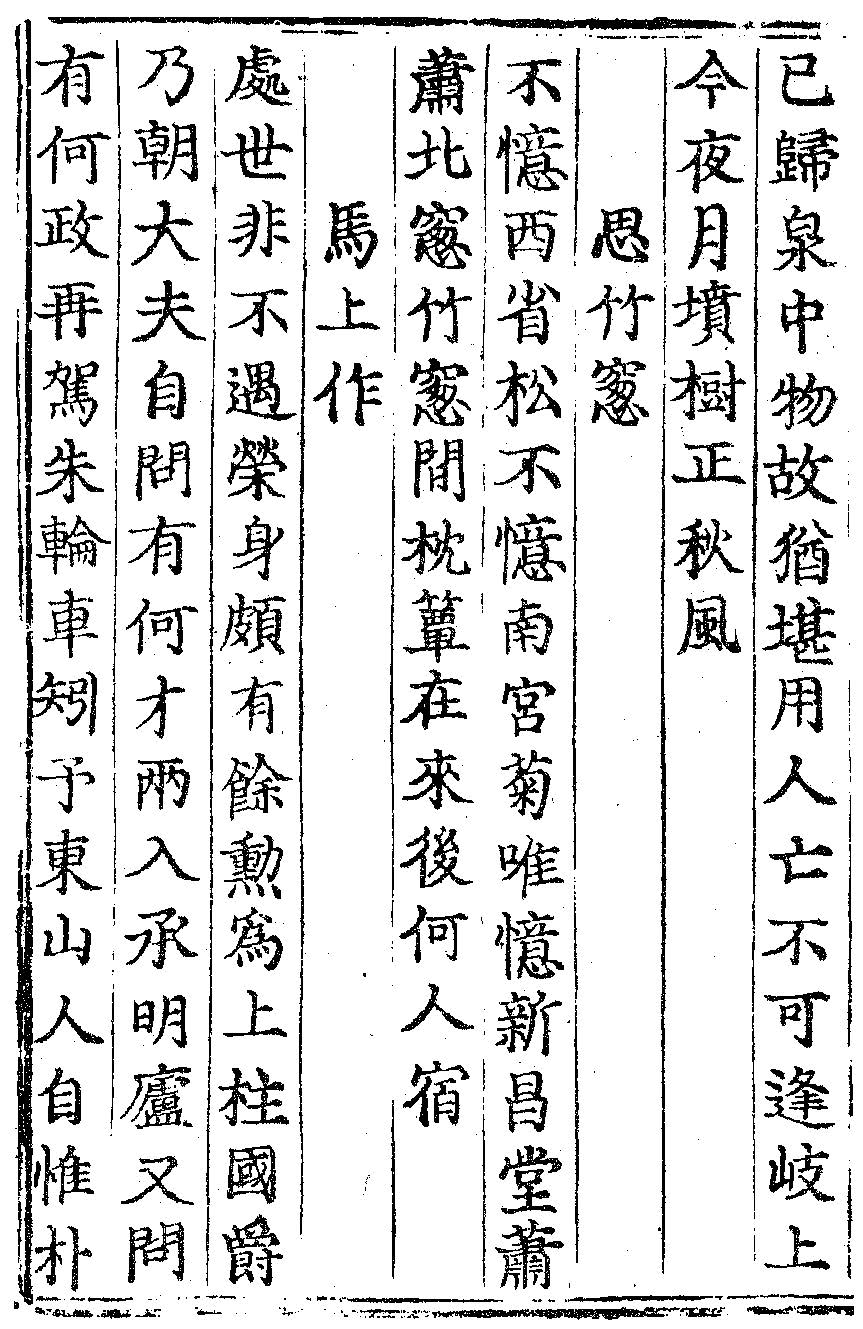 已歸泉中物故猶堪用人亡不可逢岐上
今夜月墳樹正秋風
思竹窻
不憶西省松不憶南宮菊唯憶新昌堂蕭
蕭北窻竹窻間枕簟在來後何人宿
馬上作
處世非不遇榮身頗有餘勲爲上柱國爵
乃朝大夫自問有何才兩入承明廬又問
有何政再駕朱輪車矧予東山人自惟朴